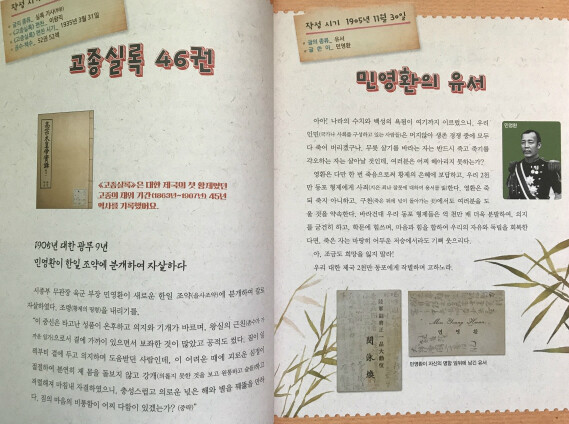 작성 시기 1935년 3월 31일
• 글의 종류_ 실록, 기사(記事)
• 《고종실록》 편찬_ 이왕직
• 《고종실록》 편찬 시기_ 1935년 3월 31일
• 권수·책수_ 52권 52책
고종실록 46권
《고종실록》은 대한 제국의 첫 황제였던
고종의 재위 기간(1863년~1907년) 45년
역사를 기록했어요.
1905년 대한 광무 9년
민영환이 한일 조약에 분개하여 자살하다
시종부 무관장 육군 부장 민영환이 새로운 한일 조약(을사조약)에 분개하여 칼로
자살하였다. 조령(황제의 명령)을 내리기를,
"이 중신은 타고난 성품이 온후하고 의지와 기개가 바르며, 왕실의 근친
으로서 곁에 가까이 있으면서 보좌한 것이 많았고 공적도 컸다. 짐이 일
찍부터 곁에 두고 의지하며 도움받던 사람인데, 이 어려운 때에 괴로운 심정이
절절하여 분연히 제 몸을 돌보지 않고 강개
격렬해져 마침내 자결하였으니, 충성스럽고 의로운 넋은 해와 별을 꿰뚫을 만하
다. 짐의 마음의 비통함이 어찌 다함이 있겠는가? (중략)"
작성 시기 1905년 11월 30일
• 글의 종류_ 유서
• 글 쓴 이_ 민영환
민영환의 유서
아아! 나라의 수치와 백성의 욕됨이 여기까지 이르렀으니, 우리
인민(국가나 사회를 구성하고 있는 사람들)은 머지않아 생존 경쟁 중에 모두
다 죽어 버리겠구나. 무릇 살기를 바라는 자는 반드시 죽고 죽기를
각오하는 자는 살아날 것인데, 여러분은 어찌 헤아리지 못하는가?
영환은 다만 한 번 죽음으로써 황제의 은혜에 보답하고, 우리 2천
만 동포 형제에게 사죄(지은 죄나 잘못에 대하여 용서를 빎)한다. 영환은 죽
되 죽지 아니하고, 구천에서도 여러분을 도
울 것을 약속한다. 바라건대 우리 동포 형제들은 억 천만 배 더욱 분발하여, 의지
를 굳건히 하고, 학문에 힘쓰며, 마음과 힘을 합하여 우리의 자유와 독립을 회복한
다면, 죽은 자는 마땅히 어두운 저승에서라도 기뻐 웃으리다.
아, 조금도 희망을 잃지 말라!
우리 대한 제국 2천만 동포에게 작별하며 고하노라.
민영환
민영환이 자신의 명함 앞뒤에 남긴 유서